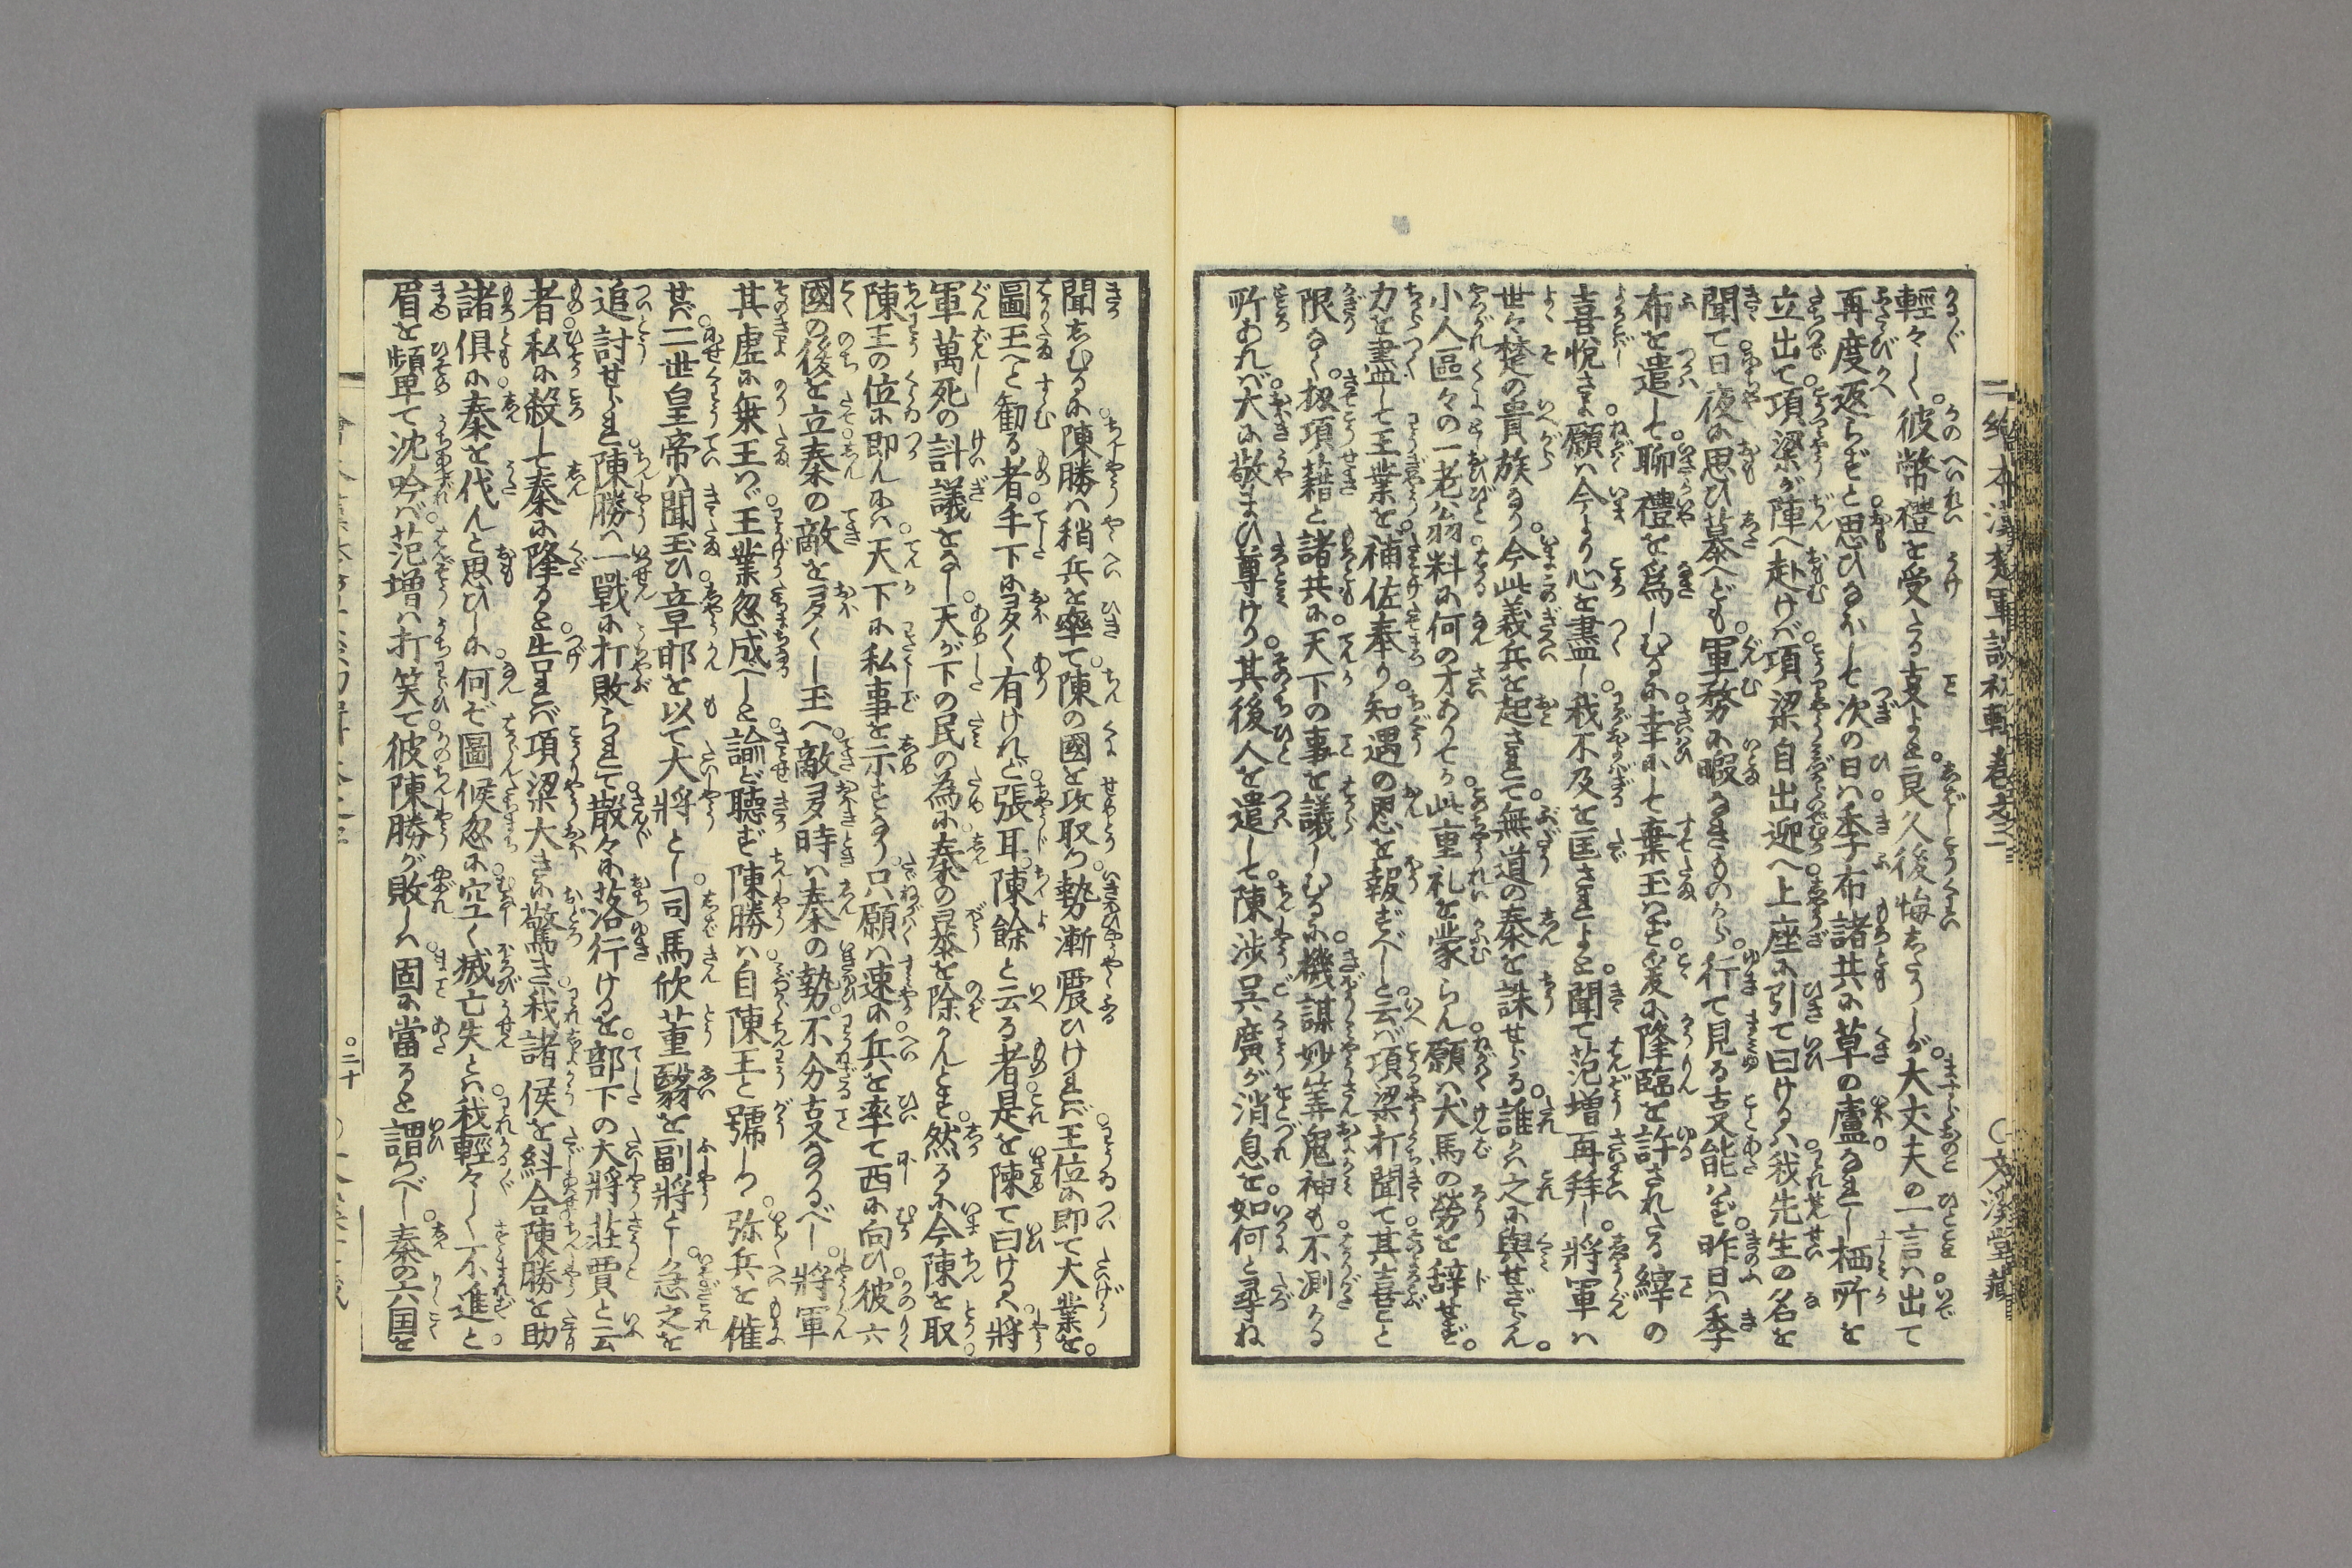 輕々しく彼幣禮を受たる事よと良久後悔したりしが大丈夫の一言は出て
再度返らずと思ひなほして次の日は季布諸共に草の廬なし栖所を
立出て項梁が陣へ赴けば項梁自出迎へ上座に引て曰けるは我先生の名を
聞て日夜に思ひ慕へども軍務に暇なきものから行て見る事能はず昨日は季
布を遣して聊禮を為しむるに幸にして棄玉はず爰に降臨を許されたる繹の
喜悦さよ願は今より心を盡し我不及を匡されよと聞て范増再拜し將軍は
世々楚の貴族なり今此義兵を起されて無道の秦を誅せらる誰かは之に與せざらん
小人區々の一老翁料に何の才ありてか此重礼を蒙らん願は犬馬の勞を辞せず
力を盡して王業を補佐奉り知遇の恩を報ずべしと云ば項梁打聞て其喜と
限なく扨項藉と諸共に天下の事を議しむるに機謀妙筭鬼神も不測かる
所あれば大に敬まひ尊けり其後人を遣して陳渉呉廣が消息を如何と尋ね
聞しむるに陳勝は稍兵を率て陳の國を攻取つ勢漸震ひければ王位に即て大業を
圖玉へと勧る者手下に多く有けれど張耳陳餘と云る者是を陳て曰けるは將
軍萬死の計議をなし天が下の民の為に秦の暴を除かんとす然るに今陳を取
陳王の位に即んには天下に私事を示すなり只願は速に兵を率て西に向ひ彼六
國の後を立秦の敵を多くし玉へ敵多時は秦の勢不分事なるべし將軍
其虚に乗玉はゞ王業忽成べしと諭ど聴ず陳勝は自陳王と號しつ弥兵を催
せば二世皇帝は聞玉ひ章邯を以て大將とし司馬欣董翳を副將とし急之を
追討せらると陳勝は一戰に打敗られて散々に落行けるを部下の大將荘賈と云
者私に殺して秦に降ると告ければ項梁大きに驚き我諸侯を糾合陳勝を助
諸俱に秦を伐んと思ひしに何ぞ圖候忽に空く滅亡失とは我輕々しく不進と
眉を顰て沈吟ば范増は打笑て彼陳勝が敗しは固に當ると謂つべし秦の六国を
二編 漢楚軍談初輯卷之二
〇文溪堂藏
〇二十